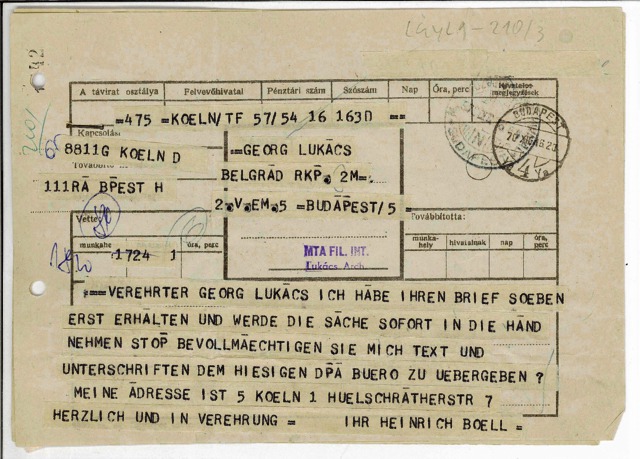 LÁyL1-210/3
A távirat osztálya Felvevőhivatal Pénztári szám Szószám Nap Óra, perc Hivatalos megjegyzések
=475 = KOELN/TF 57/54 16 163D ==
BUDAPEST
Kapcsolás:
8811G KOELN D
=GEORG LUKÁCS
111RÁ BPEST H
BELGRÁD RKP. 2M=
2.V.EM.5 =BUDÁPEST/5 =
Vette: Továbbította:
munkahe óra, perc munka-hely hivatalnak nap óra, perc
1724 1
MTA FIL. INT.
Lukács Arch.
==VEREHRTER GEORG LUKÁCS ICH HÁBE IHREN BRIEF SOEBEN
ERST ERHÁLTEN UND WERDE DIE SÁCHE SOFORT IN DIE HÁND
NEHMEN STOP BEVOLLMÁECHTIGEN SIE MICH TEXT UND
UNTERSCHRIFTEN DEM HIESIGEN DPÁ BUERO ZU UEBERGEBEN ?
MEINE ÁDRESSE IST 5 KOELN 1 HUELSCHRÁTHERSTR 7
HERZLICH UND IN VEREHRUNG = IHR HEINRICH BOELL =